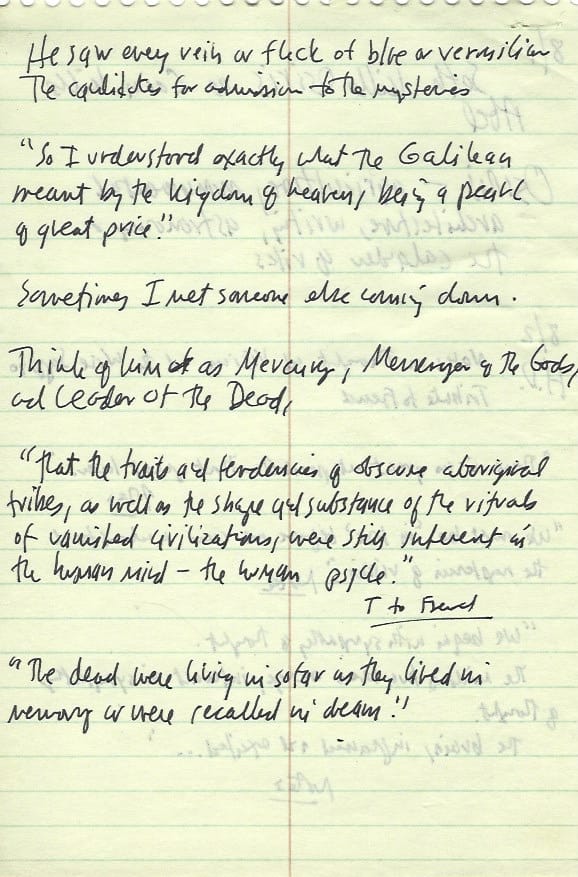 He saw every vein or fleck of blue or vermilian
The candidates for admission to the mysteries
"So I understood exactly what the Galilean
meant by the kingdom of heaven, being a pearl
of great price."
Sometimes I met someone else coming down.
Think of him as Mercury, Messenger of the Gods,
and Leader of the Dead,
"that the traits and tendencies of obscure aboriginal
tribes, as well as the shape and substance of the rituals
of vanished civilizations, were still inherent in
the human mind – the human psyche."
T to Freud
"The dead were living in so far as they lived in
memory or were recalled in dream."